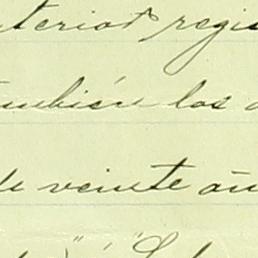 terior regis
también los a
de veinte añ